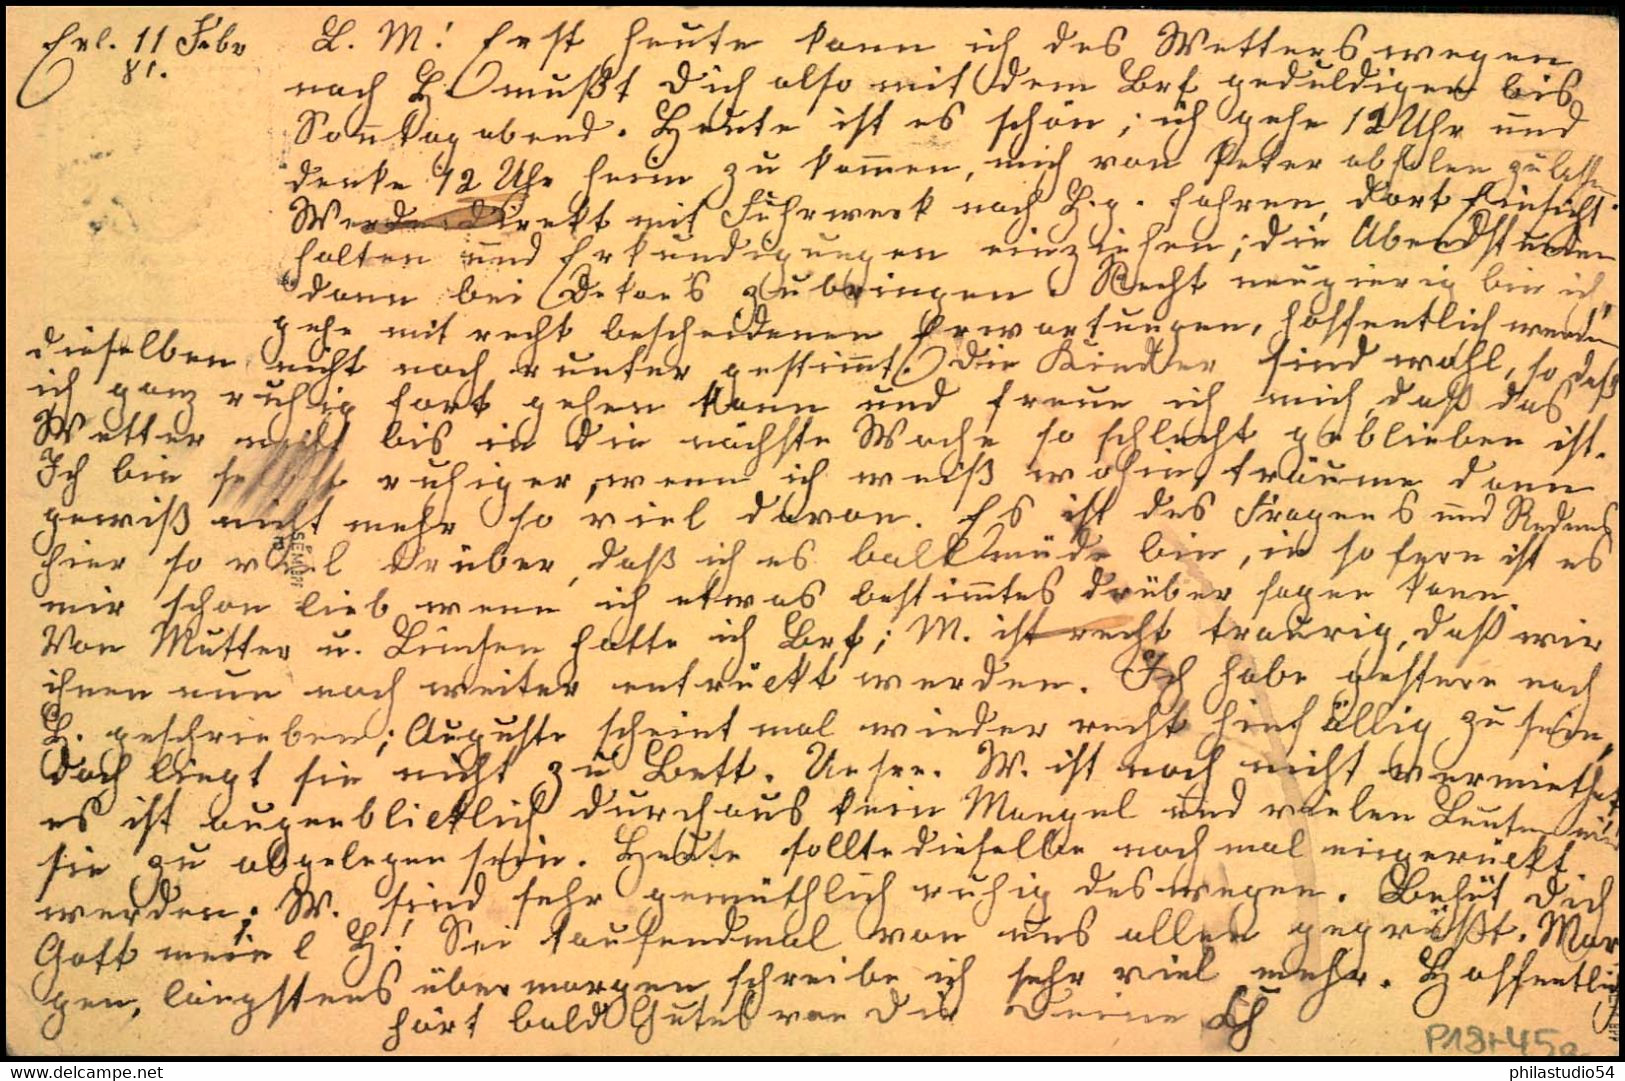 Erl. 11 Febr
81.
L. M.! Erst heute kann ich des Wetters wegen
nach H. mußt Dich also mit dem Brf geduldigen bis
Sonntag abend. Heute ist es schön; ich gehe 12 Uhr und
denke 12 Uhr heim zu kommen, mich von Peter abholen zu lassen
Werde direkt mit Fuhrwerk nach H.g. fahren, dort Einsicht
halten und Erkundigungen einziehen; die Abendstunden
dann bei zubringen. Recht neugierig bin ich,
gehe mit recht bescheidenen Erwartungen, hoffentlich werden
dieselben nicht noch runter gestimmt. Die Kinder sind wohl, so daß
ich ganz ruhig fort gehen kann und freue ich mich, daß das
Wetter nicht bis in die nächste Woche so schlecht geblieben ist.
Ich bin selbst ruhiger, wenn ich weiß wohin, träume dann
gewiß nicht mehr so viel davon. Es ist des Fragens und Redens
hier so viel drüber, daß ich es bald müde bin, in so fern ist es
mir schon lieb wenn ich etwas bestimmtes drüber sagen kann.
Von Mutter u. Linchen hatte ich Brf; M. ist recht traurig, daß wir
ihnen nun noch weiter entrückt werden. Ich habe gestern nach
H. geschrieben; Auguste scheint mal wieder recht hinfällig zu sein,
doch liegt sie nicht zu Bett. Unsere W. ist noch nicht vermiethet
es ist augenblicklich durchaus kein Mangel und vielen Leuten wird
sie zu abgelegen sein. Heute sollte dieselbe noch mal eingerückt
werden. W. sind sehr gemüthlich ruhig deswegen. Behüt Dich
Gott mein l H! Sei tausendmal von uns allen gegrüßt. Mor
gen, längstens übermorgen schreibe ich sehr viel mehr. Hoffentlich
hört bald Gutes von Dir Deine
P18+45a
philastudio54